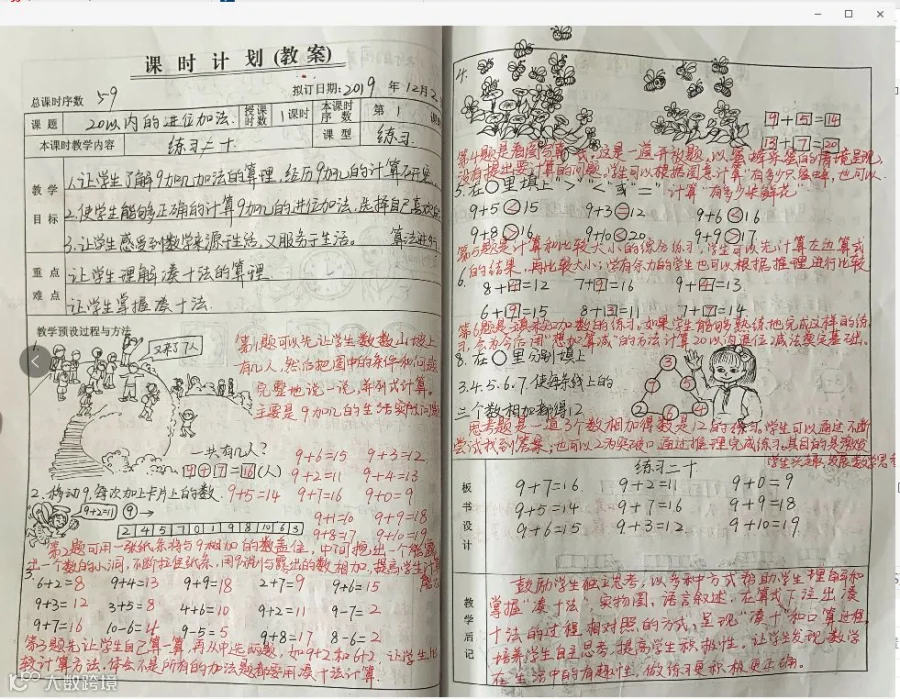 课时计划(教案)
总课时序数 59 拟订日期:2019年12月2
课题 20以内的进位加法 授课时数 1课时 本课时序数 第1
本课时教学内容 练习二十 课型 练习
教学目标
1.让学生了解9加几加法的算理,经历9加几的计算
2.使学生能够正确的计算9加几的进位加法,选择自己喜欢的
算法进行
3.让学生感受到数学来源于生活,又服务于生活。
重点难点
让学生理解凑十法的算理
让学生掌握凑十法.
教学预设过程与方法
1.
又来了7人
第1题可以先让学生数数山坡上
有几人,然后把图中的条件和问题
完整地说一说,并列式计算。
主要是9加几的生活实际问题
一共有几人?
9+7=16(人)
9+6=15 9+3=12
9+2=11 9+4=13
2.移动9,每次加上卡片上的数. 9+5=14 9+7=16 9+0=9
9+2=11 9→
9+1=10 9+9=18
2 4 5 7 0 1 9 8 10 6 3
9+8=17 9+10=19
第2题可用一张纸条将与9相加的数盖住,中间挖出一个能露
出一个数的小洞,不断拉纸条,用9分别与露出的数相加,提高学生计算
能力
3.
6+2=8 9+4=13 9+9=18 2+7=9 9+6=15
9+3=12 3+5=8 4+6=10 9+2=11 9-7=2
9+7=16 10-6=4 9-5=5 9+8=17 8-6=2
第3题先让学生自己算一算,再从中选两题,如9+2和6+2,让学生比
较计算方法,体会不是所有的加法题都要用凑十法计算.
4.
9+5=14
13+7=20
第4题是看图写算式,这是一道开放题,以蜜蜂采蜜的情境呈现,
没有提出要计算的问题,学生可以根据图意计算"有多少只蜜蜂,也可以
计算"有多少朵鲜花"
5.在○里填上">""<"或"="
9+5<15 9+3=12 9+6<16
9+8>16 9+10<20 9+9>17
第5题是计算和比较大小的综合练习,学生可以先计算左边算式
的结果,再比较大小;学有余力的学生也可以根据推理进行比较
6.
8+4=12 7+9=16 9+4=13
6+9=15 8+3=11 7+7=14
第6题是填未知加数的练习,如果学生能够熟练地完成这样的练
习,会为今后用"想加算减"的方法计算20以内退位减法奠定基础.
8.在○里分别填上
3.4.5.6.7.使每条线上的
三个数相加都得12
3
7 5
2 6 4
思考题是一道3个数相加得数是12的练习,学生可以通过不断
尝试找到答案,也可以2为突破口通过推理完成练习,其目的是激发
学生兴趣,发展数学思考
板书设计
练习二十
9+7=16 9+2=11 9+0=9
9+5=14 9+7=16 9+9=18
9+6=15 9+3=12 9+10=19
教学后记
鼓励学生独立思考,以多种方式帮助学生理解和
掌握"凑十法",实物图、语言叙述、在算式下注出凑
十法的过程相对照的方式,呈现"凑十"和口算过程,
培养学生自主思考,提高学生积极性。让学生发现数学
在生活中的有趣性,做练习更积极更正确。
大数跨境